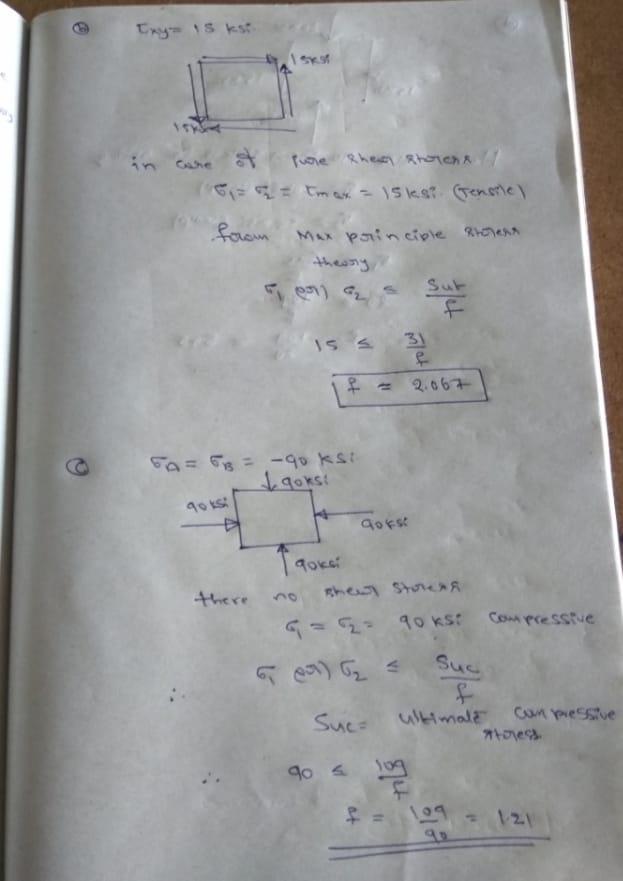 (b) τxy = 15 ksi
15ksi
15ksi
in case of pure shear stress
σ1 = σ2 = τmax = 15 ksi. (Tensile)
from Max principle stress
theory
σ1 (or) σ2 ≤ Sut/f
15 ≤ 31/f
f = 2.067
(c) σA = σB = -90 ksi
90ksi
90ksi
90ksi
90ksi
there no shear stress
σ1 = σ2 = 90 ksi compressive
∴ σ1 (or) σ2 ≤ Suc/f
Suc = ultimate compressive
stress
∴ 90 ≤ 109/f
f = 109/90 = 1.21